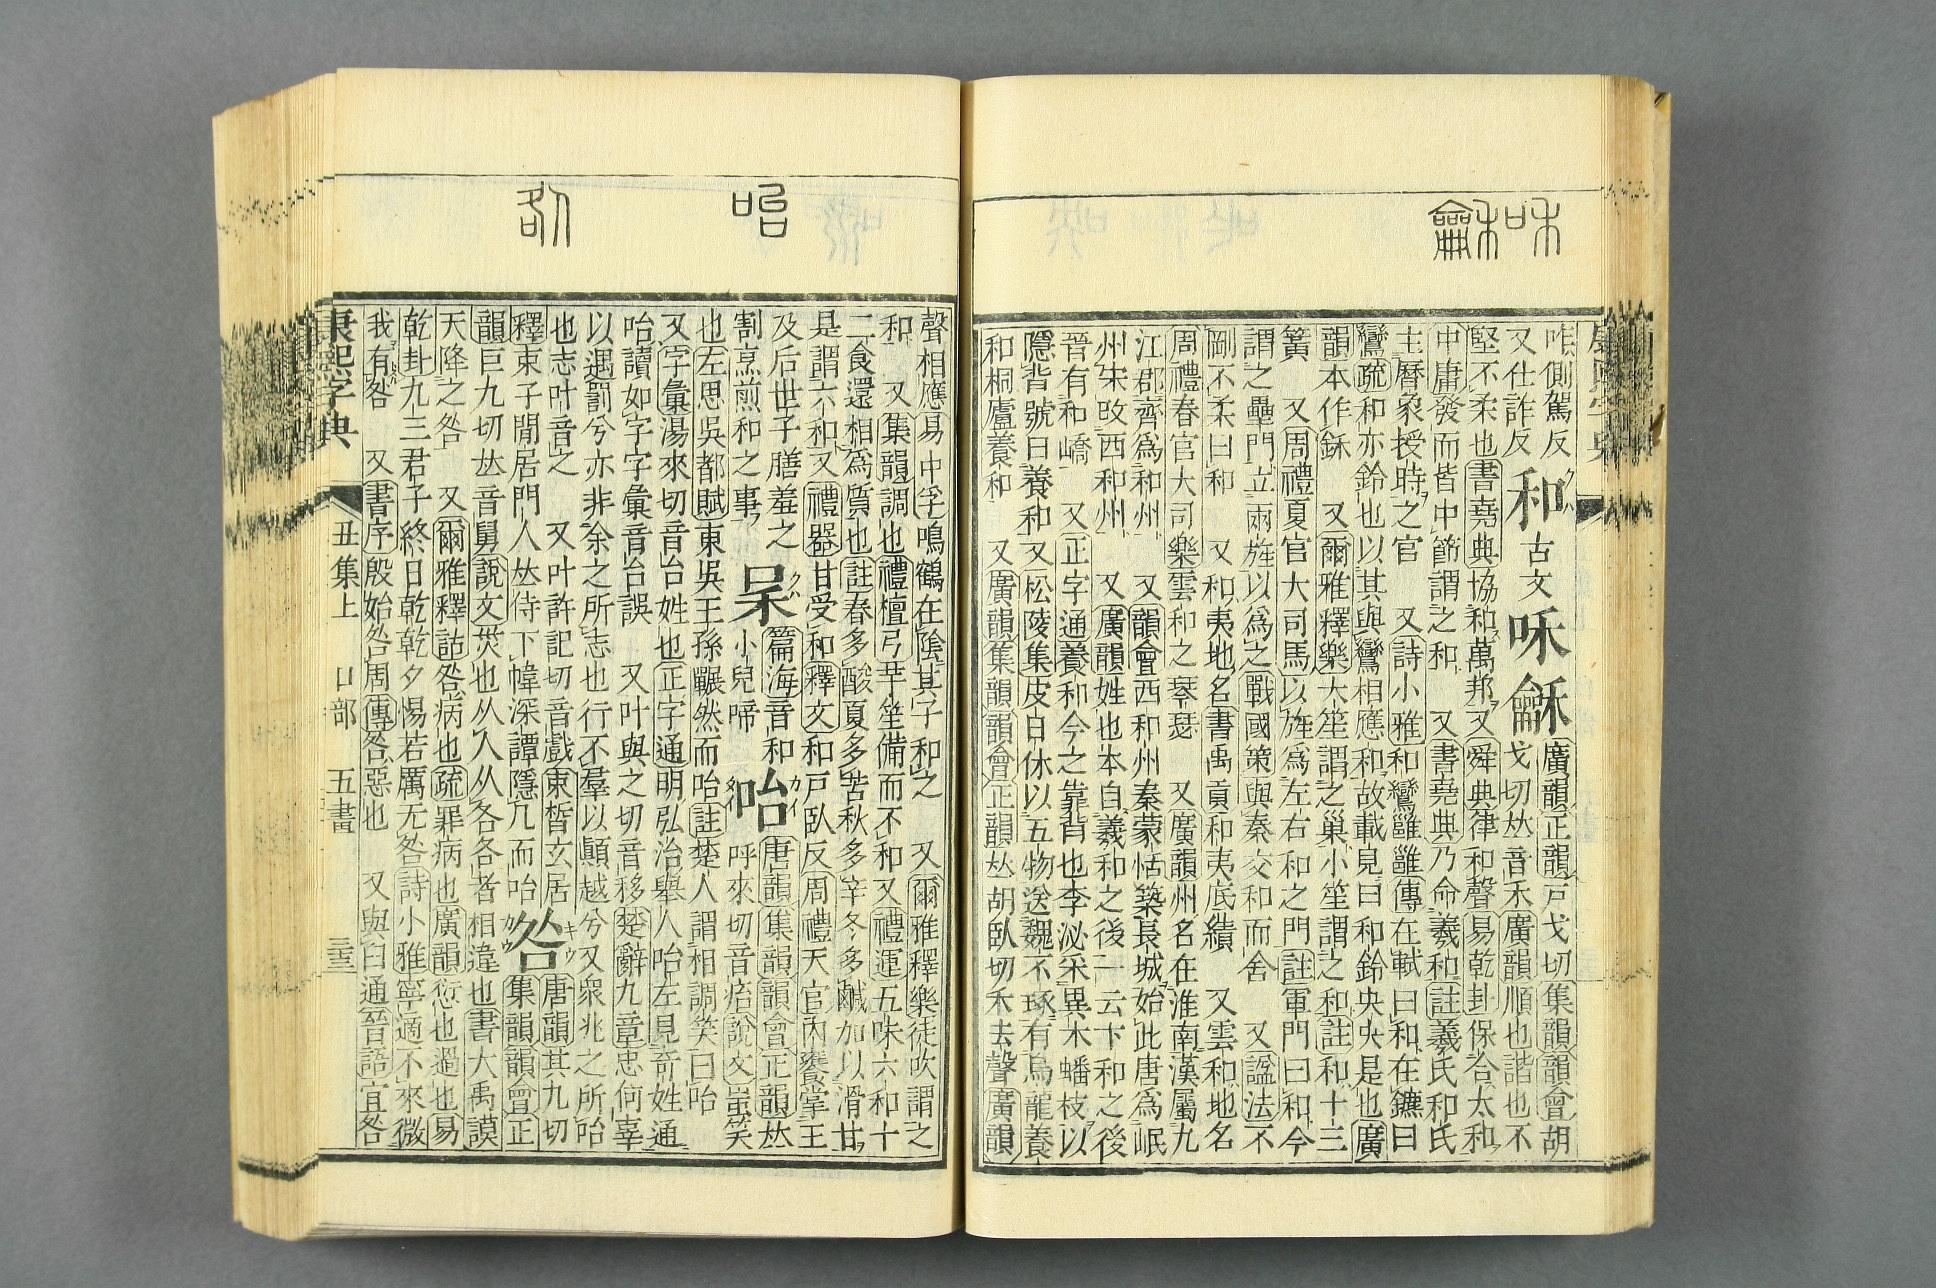 咊龢
咋側駕反 和 古文咊龢 廣韻正韻戸戈切集韻韻會胡
又仕詐反 クハ 戈切𠀤音禾廣韻順也諧也不
堅不柔也書堯典協和萬邦又舜典律和聲易乾卦保合太和
中庸發而皆中節謂之和 又書堯典乃命羲和註羲氏和氏
主曆象授時之官 又詩小雅和鸞雝雝傳在軾曰和在鑣曰
鸞疏和亦鈴也以其與鸞相應和故載見曰和鈴央央是也廣
韻本作龢 又爾雅釋樂大笙謂之巢小笙謂之和註和十三
簧 又周禮夏官大司馬以旌爲左右和之門註軍門曰和今
謂之壘門立兩旌以爲之戰國策與秦交和而舍 又諡法不
剛不柔曰和 又和夷地名書禹貢和夷底績 又雲和地名
周禮春官大司樂雲和之琴瑟 又廣韻州名在淮南漢屬九
江郡齊爲和州 又韻會西和州秦蒙恬築長城始此唐爲岷
州宋改西和州 又廣韻姓也本自羲和之後一云卞和之後
晉有和嶠 又正字通養和今之靠背也李泌采異木蟠枝以
隱背號曰養和又松陵集皮日休以五物送魏不琢有烏龍養
和桐廬養和 又廣韻集韻韻會正韻𠀤胡臥切禾去聲廣韻
㕽
咎
聲相應易中孚鳴鶴在陰其子和之 又爾雅釋樂徒吹謂之
和 又集韻調也禮檀弓竽笙備而不和又禮運五味六和十
二食還相爲質也註春多酸夏多苦秋多辛冬多鹹加以滑甘
是謂六和又禮器甘受和釋文和戸臥反周禮天官內饔掌王
及后世子膳羞之 クハ 呆 篇海音和 カイ 咍 唐韻集韻韻會正韻𠀤
割烹煎和之事 小兒啼 呼來切音痎說文蚩笑
也左思吳都賦東吳王孫囅然而咍註楚人謂相調笑曰咍
又字彙湯來切音台姓也正字通明弘治舉人咍左見奇姓通
咍讀如字字彙音台誤 又叶與之切音移楚辭九章忠何辜
以遇罰兮亦非余之所志也行不羣以顚越兮又衆兆之所咍
也志叶音之 又叶許記切音戲東晳玄居
釋束子閒居門人𠀤侍下幃深譚隱几而咍 キウ 咎 カウ 唐韻其九切
集韻韻會正
韻巨九切𠀤音舅說文災也从人从各各者相違也書大禹謨
天降之咎 又爾雅釋詁咎病也疏罪病也廣韻愆也過也易
乾卦九三君子終日乾乾夕惕若厲无咎詩小雅寧適不來微
我有咎 又書序殷始咎周傳咎惡也 又與臼通晉語宜咎
康熙字典 丑集上 口部 五畫